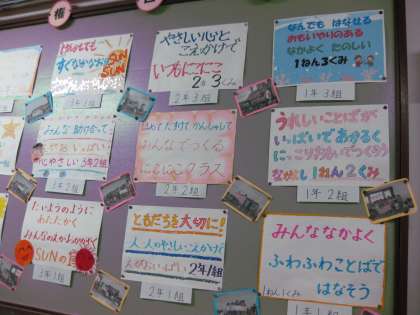 権
けんかしても
すぐなかなおり
SUN
SUN
3年3組
やさしい心と
こえかけで
いつもにこにこ
2年3くみ
2年3組
なんでも はなせる
おもいやりのある
なかよく たのしい
1ねん3くみ
1年3組
みんな 助け合って
3年2組
3年2組
みんなでつくる
クラス
2年2組
うれしいことばが
いっぱいで あかるく
にっこりえがおでつくろう
なかよし1ねん2くみ
1年2組
たいようのように
あたたかく
みんなのえがおかがやく
SUNの
3年1組
ともだちを大切に!
一人一人のやさしいこえかけで
えがおいっぱい 2年1組
2年1組
みんななかよく
ふわふわことばで
はなそう
1ねん1くみ
1年1組